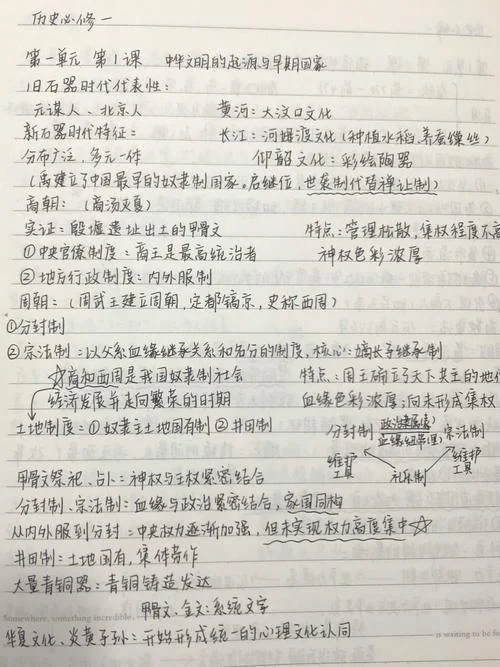 历史必修一
第一单元 第1课 中华文明的起源与早期国家
旧石器时代代表性:
元谋人、北京人 黄河:大汶口文化
新石器时代特征: 长江:河姆渡文化(种植水稻.养蚕缫丝)
分布广泛,多元一体 仰韶文化:彩绘陶器
(禹建立了中国最早的奴隶制国家。启继位,世袭制代替禅让制)
商朝:(商汤灭夏)
实证:殷墟遗址出土的甲骨文 特点:管理松散,集权程度不高
①中央官僚制度:商王是最高统治者 神权色彩浓厚
②地方行政制度:内外服制
周朝:(周武王建立周朝,定都镐京,史称西周)
①分封制
②宗法制:以父系血缘继承关系和名分的制度,核心:嫡长子继承制
☆商和西周是我国奴隶制社会 特点:周王确立了天下共主的地位
经济发展并走向繁荣的时期 血缘色彩浓厚;尚未形成权力
土地制度:①奴隶主土地国有制 ②井田制 分封制 宗法制
维护工具 维护工具
礼乐制
甲骨文祭祀、占卜:神权与王权紧密结合
分封制、宗法制:血缘与政治紧密结合,家国同构
从内外服到分封:中央权力逐渐加强,但未实现权力高度集中☆
井田制:土地国有,集体劳作
大量青铜器:青铜铸造发达
甲骨文、金文:系统文字
华夏文化、炎黄子孙:开始形成统一的心理文化认同
Somewhere, something incredible
is waiting to be